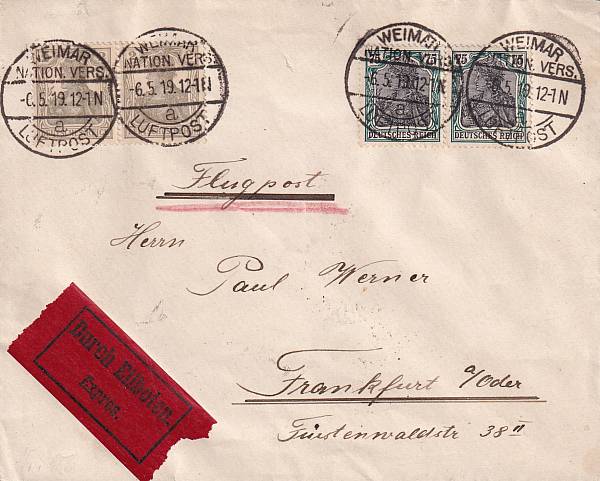 WEIMAR
NATION. VERS.
-6.5.19.12-1N
a
LUFTPOST
WEIMAR
NATION. VERS.
-6.5.19.12-1N
a
LUFTPOST
WEIMAR
NATION. VERS.
-6.5.19.12-1N
a
75
DEUTSCHES REICH
WEIMAR
VERS.
-6.5.19.12-1N
75 75
DEUTSCHES REICH
Flugpost
Herrn
Paul Werner
Frankfurt a/Oder
Fürstenwaldstr 38 II
Durch Eilboten.
Expres.